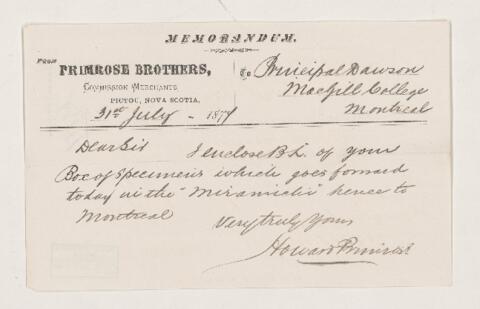 MEMORANDUM.
FROM
PRIMROSE BROTHERS,
COMMISSION MERCHANTS
PICTOU, NOVA SCOTIA,
31st July - 1877
To Principal Dawson
MacGill College
Montreal
Dear Sir I enclose B.L. of your
Box of Specimens which goes forward
today in the "Miramichi" hence to
Montreal
Very truly Yours
Howard Primrose